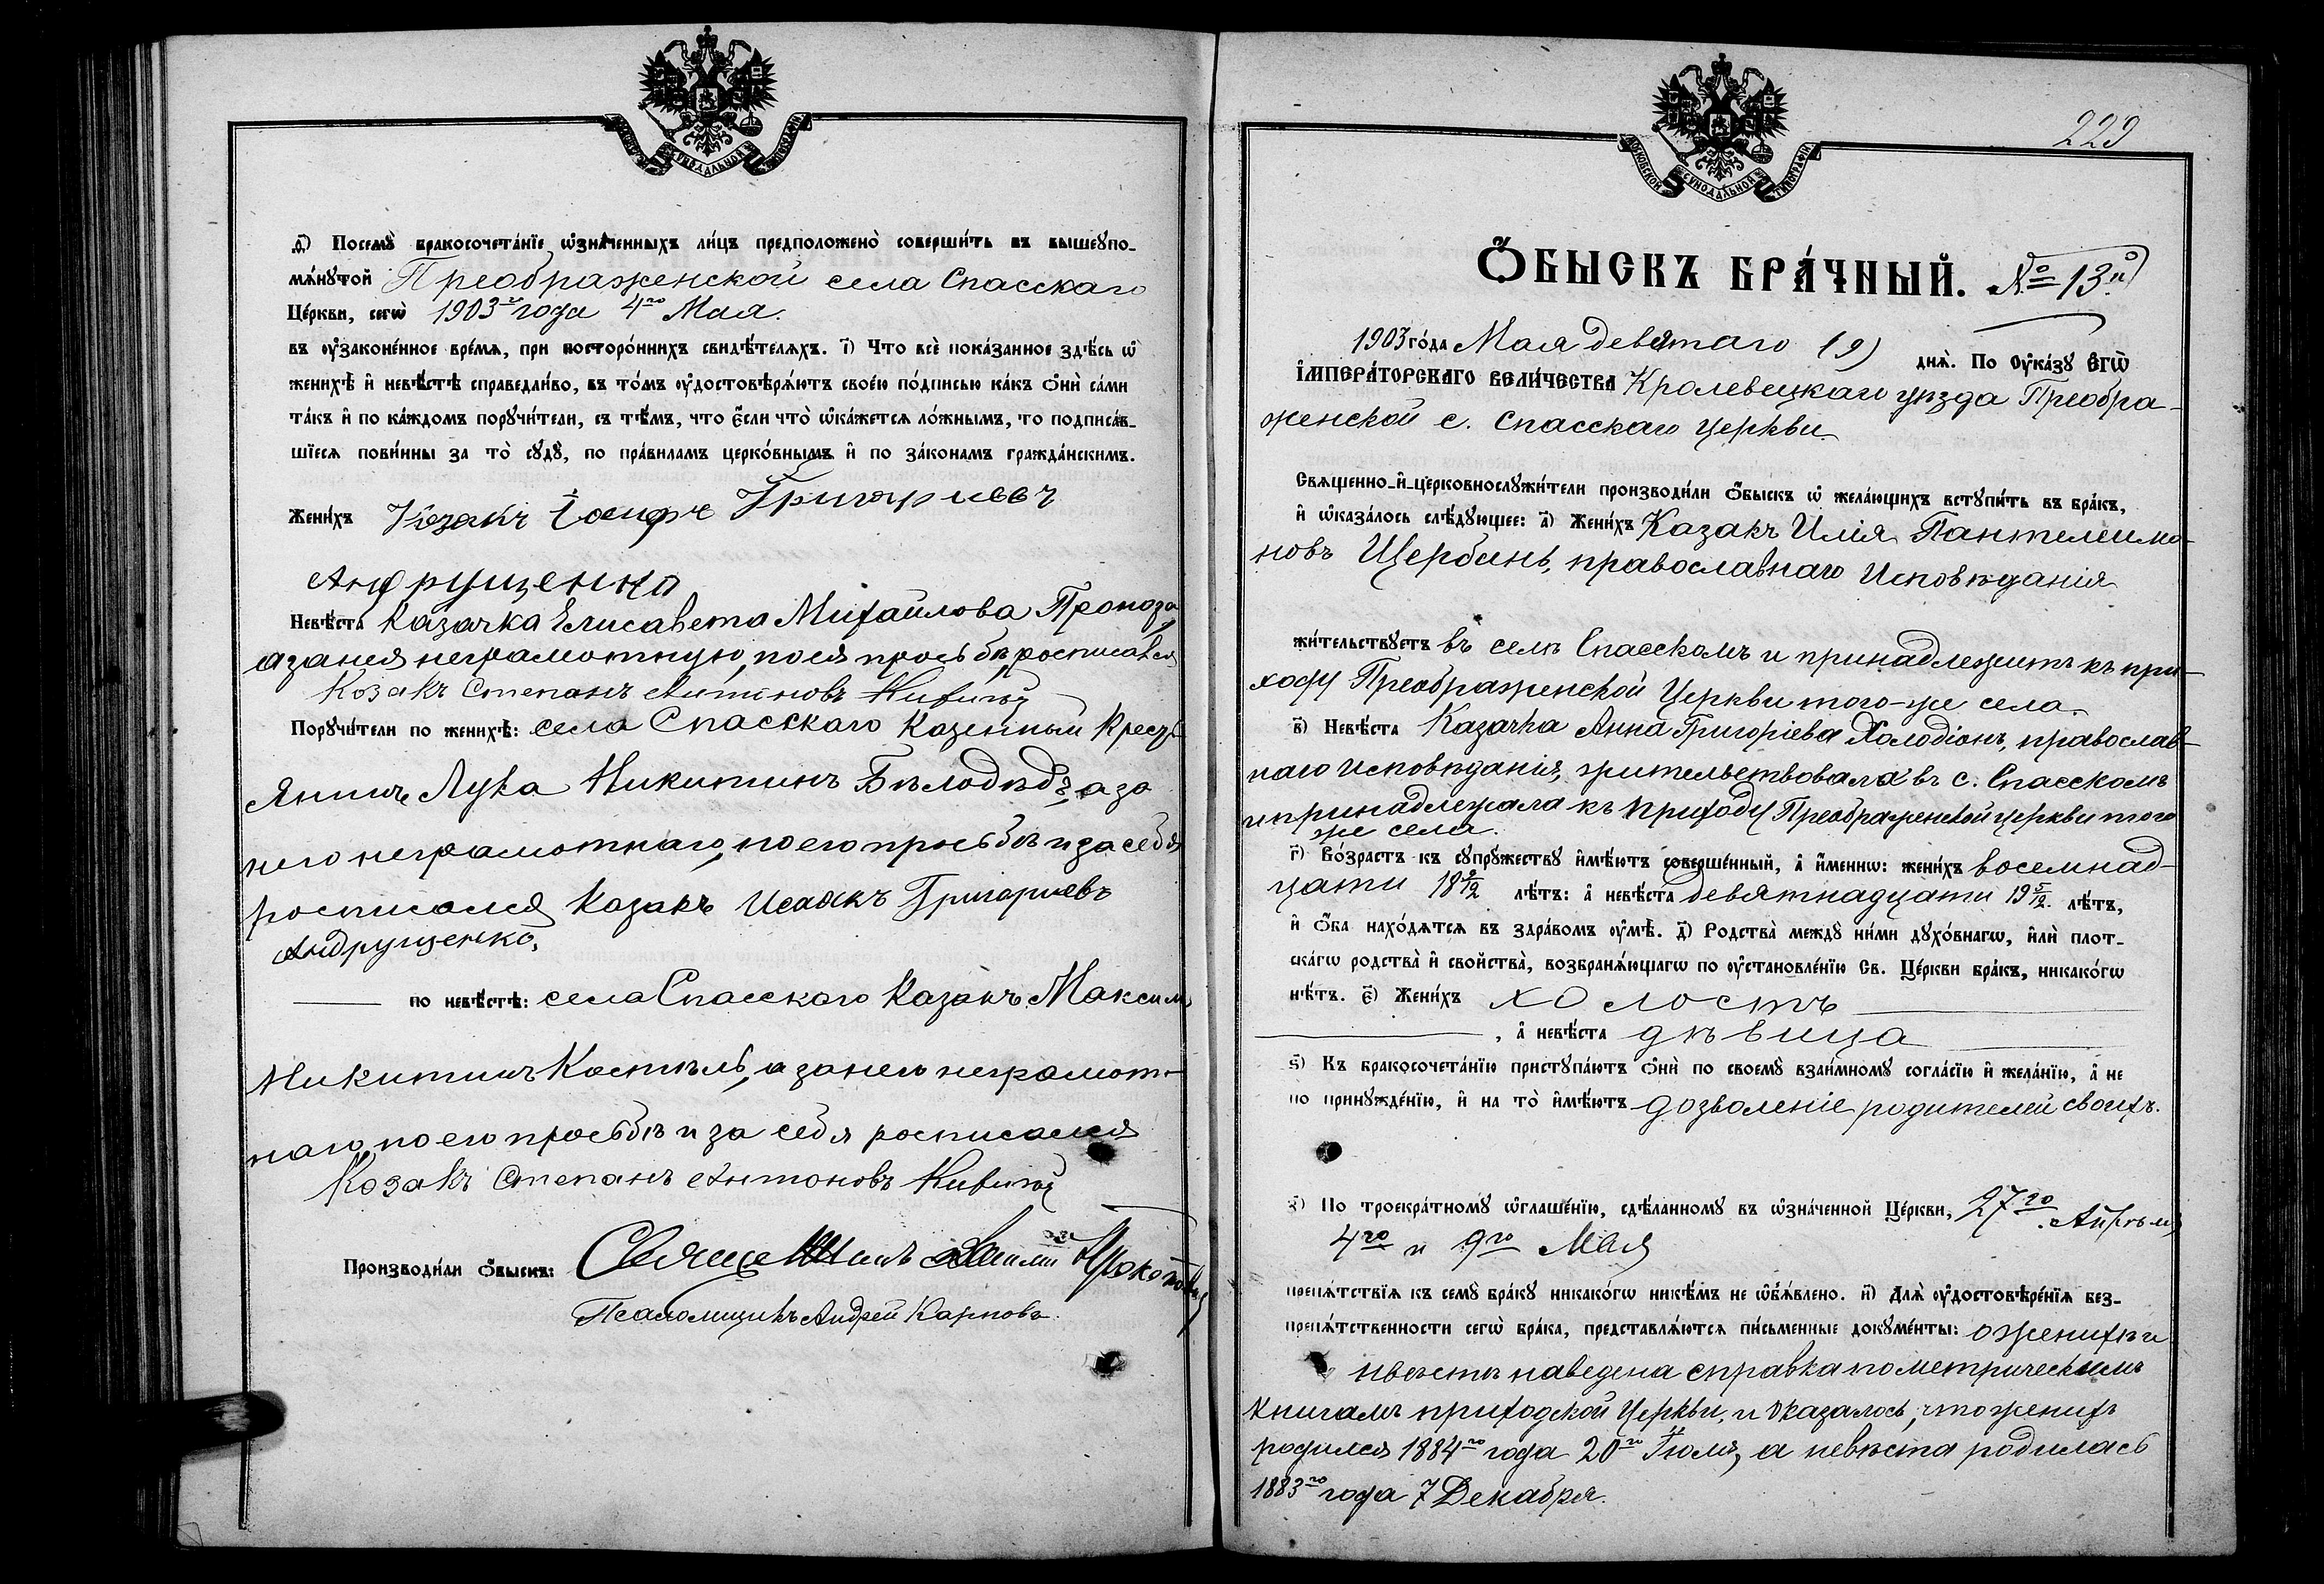 МОСКОВСКОЙ СѴНОДАЛЬНОЙ ТИПОГРАФІИ
д҃) Посемꙋ̀ бракосочета́нїе ѡ҆зна́ченныхъ ли́цъ предположено̀ соверши́ть въ вышеꙋпо-
мѧ́нꙋтой Преображенской села Спасскаго
Це́ркви, сегѡ̀ 1903го года 4го Мая.
въ ѹ҆законе́нное вре́мѧ, при посторо́ннихъ свидѣ́телѧхъ. і҃) Что всѐ пока́занное здѣ́сь ѡ҆
женихѣ̀ и҆ невѣ́стѣ справедли́во, въ то́мъ ѹ҆достовѣрѧ́ютъ свое́ю по́дписью ка́къ ѻ҆нѝ са́ми
та́къ и҆ по ка́ждомъ порꙋчи́тели, съ тѣ́мъ, что є҆́сли что̀ ѡ҆ка́жетсѧ ло́жнымъ, то подписа́в-
шїесѧ пови́нны за то̀ сꙋдꙋ̀, по пра́виламъ церко́внымъ и҆ по зако́намъ гражда́нскимъ.
Жени́хъ Козакъ Іосифъ Григориевъ
Андрущенко
Невѣ́ста Казачка Елисавета Михайлова Проноза
а за нея неграмотную, по ея просьбѣ росписался
Козакъ Степанъ Антоновъ
Порꙋчи́тели по женихѣ̀: села Спасскаго Казенный Кресть
янинъ Лука Никитинъ Бѣлодѣдъ, а за
него неграмотнаго, по его просьбѣ и за себя
росписался Казакъ Исаакъ Григориевъ
Андрущенко,
по невѣ́стѣ: села Спасскаго Казакъ Максим
Никитинъ Костюль, а за него неграмот-
наго, по его просьбѣ и за себя росписался
Козакъ Степанъ Антоновъ
Производи́ли ѻ҆́быскъ: Священникъ Василій Прокоповичъ
Псаломщикъ Андрей Карповъ.
МОСКОВСКОЙ СѴНОДАЛЬНОЙ ТИПОГРАФІИ
229
Ѻ҆́БЫСКЪ БРА́ЧНЫЙ. № 13й
1903 го́да Мая девятаго (9) днѧ̀. По Ѹ҆ка́зꙋ Є҆гѡ̀
І҆МПЕРА́ТОРСКАГО ВЕЛИ́ЧЕСТВА Кролевецкаго уѣзда Преобра-
женской с. Спасскаго церкви
Свѧщенно-и҆-церковнослꙋжи́тели производи́ли ѻ҆́быскъ ѡ҆ жела́ющихъ встꙋпи́ть въ бра́къ,
и҆ ѡ҆каза́лось слѣ́дꙋющее: а҃) Жени́хъ Казакъ Илія Пантелеимо-
новъ Щербинь, православнаго Исповѣданія
жи́тельствꙋетъ въ селѣ Спасскомъ и принадлежитъ къ при-
ходу Преображенской Церкви того-же села.
в҃) Невѣ́ста Казачка Анна Григоріева Холодіонъ, православ-
наго исповѣданія, жительствовала въ с. Спасскомъ
и принадлежала къ приходу Преображенской церкви того
же села.
г҃) Во́зрастъ къ сꙋпрꙋ́жествꙋ и҆мѣ́ютъ соверше́нный, а҆ и҆́меннѡ: жени́хъ восемнад-
цати 18 9/12 лѣ́тъ: а҆ невѣ́ста девятнадцати 19 5/12 лѣ́тъ,
и҆ ѻ҆́ба нахо́дѧтсѧ въ здра́вомъ ѹ҆мѣ̀. д҃) Родства̀ междꙋ ни́ми дꙋхо́внагѡ, и҆лѝ плот-
ска́гѡ родства̀ и҆ свойства̀, возбранѧ́ющагѡ по ѹ҆становле́нїю Св. Це́ркви бра́къ, никако́гѡ
нѣ́тъ. є҃) Жени́хъ холостъ
, а҆ невѣ́ста дѣвица
ѕ҃) Къ бракосочета́нїю пристꙋпа́ютъ ѻ҆нѝ по своемꙋ̀ взаи́мномꙋ согла́сїю и҆ жела́нїю, а҆ не
по принꙋжде́нїю, и҆ на то̀ и҆мѣ́ютъ дозволеніе родителей своихъ.
з҃) По троекра́тномꙋ ѡ҆глаше́нїю, сдѣ́ланномꙋ въ ѡ҆зна́ченной Це́ркви, 27го Апрѣля
4го и 9го Мая
препѧ́тствїѧ къ семꙋ̀ бра́кꙋ никако́гѡ никѣ́мъ не ѡ҆б̾ѧ́влено. и҃) Длѧ̀ ѹ҆достовѣре́нїѧ без-
препѧ́тственности сегѡ̀ бра́ка, представлѧ́ютсѧ пи́сьменные докꙋме́нты: о женихѣ и
невѣстѣ наведена справка по метрическимъ
книгамъ приходской Церкви, и оказалось, что женихъ
родился 1884го года 20го Іюля, а невѣста родилась
1883го года 7 Декабря.